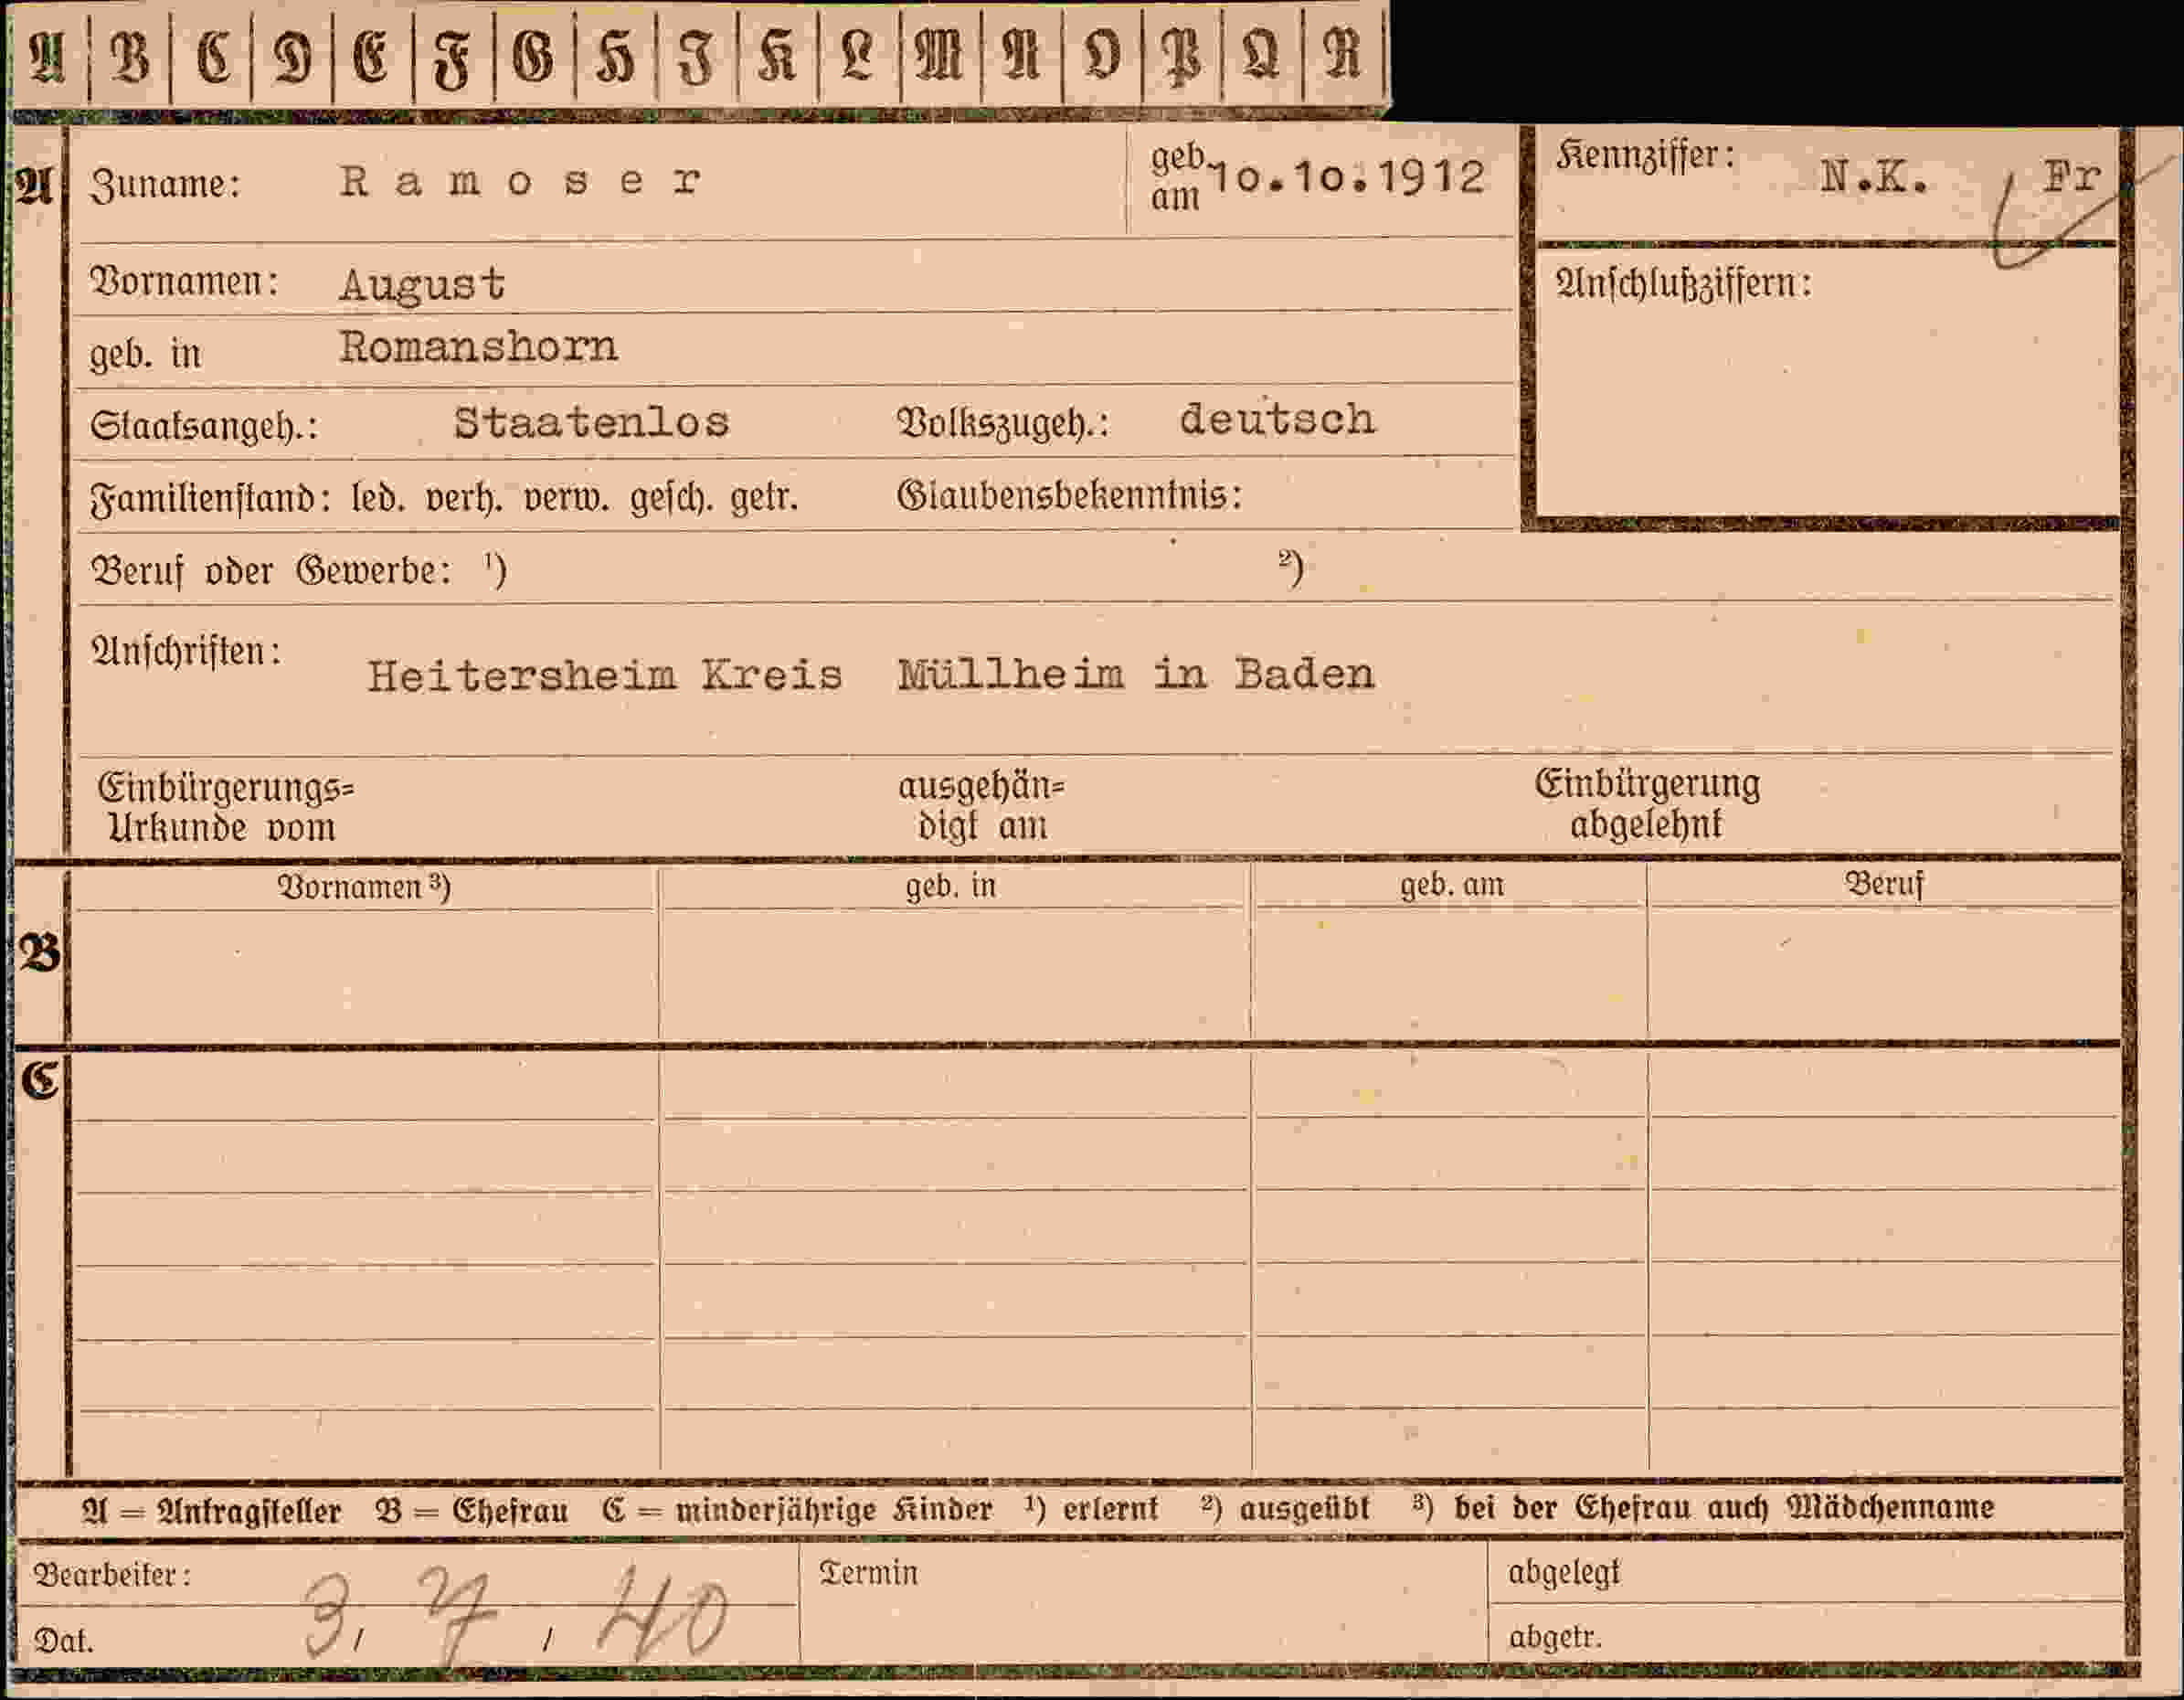 A B C D E F G H I K L M N O P Q R
A Zuname: Ramoser geb. am 10.10.1912 Kennziffer: N.K. Fr
Vornamen: August Anschlußziffern:
geb. in Romanshorn
Staatsangeh.: Staatenlos Volkszugeh.: deutsch
Familienstand: led. verh. verw. gesch. getr. Glaubensbekenntnis:
Beruf oder Gewerbe: ¹) ²)
Anschriften: Heitersheim Kreis Müllheim in Baden
Einbürgerungs= ausgehän= Einbürgerung
Urkunde vom digt am abgelehnt
Vornamen ³) geb. in geb. am Beruf
B
C
A = Antragsteller B = Ehefrau C = minderjährige Kinder ¹) erlernt ²) ausgeübt ³) bei der Ehefrau auch Mädchenname
Bearbeiter: Termin abgelegt
Dat. 3, 7, 40 abgetr.